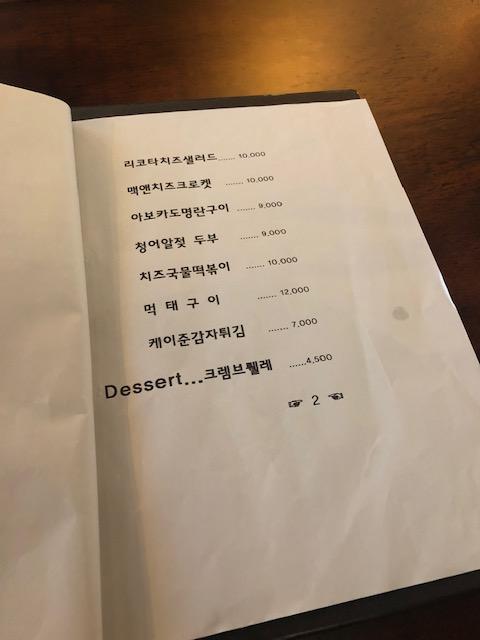 리코타치즈샐러드...... 10,000
맥앤치즈크로켓 ...... 10,000
아보카도명란구이 ...... 9,000
청어알젓 두부 ...... 9,000
치즈국물떡볶이 ...... 10,000
먹 태 구 이 ...... 12,000
케이준감자튀김 ...... 7,000
Dessert...크렘브륄레 ......4,500
☞ 2 ☜